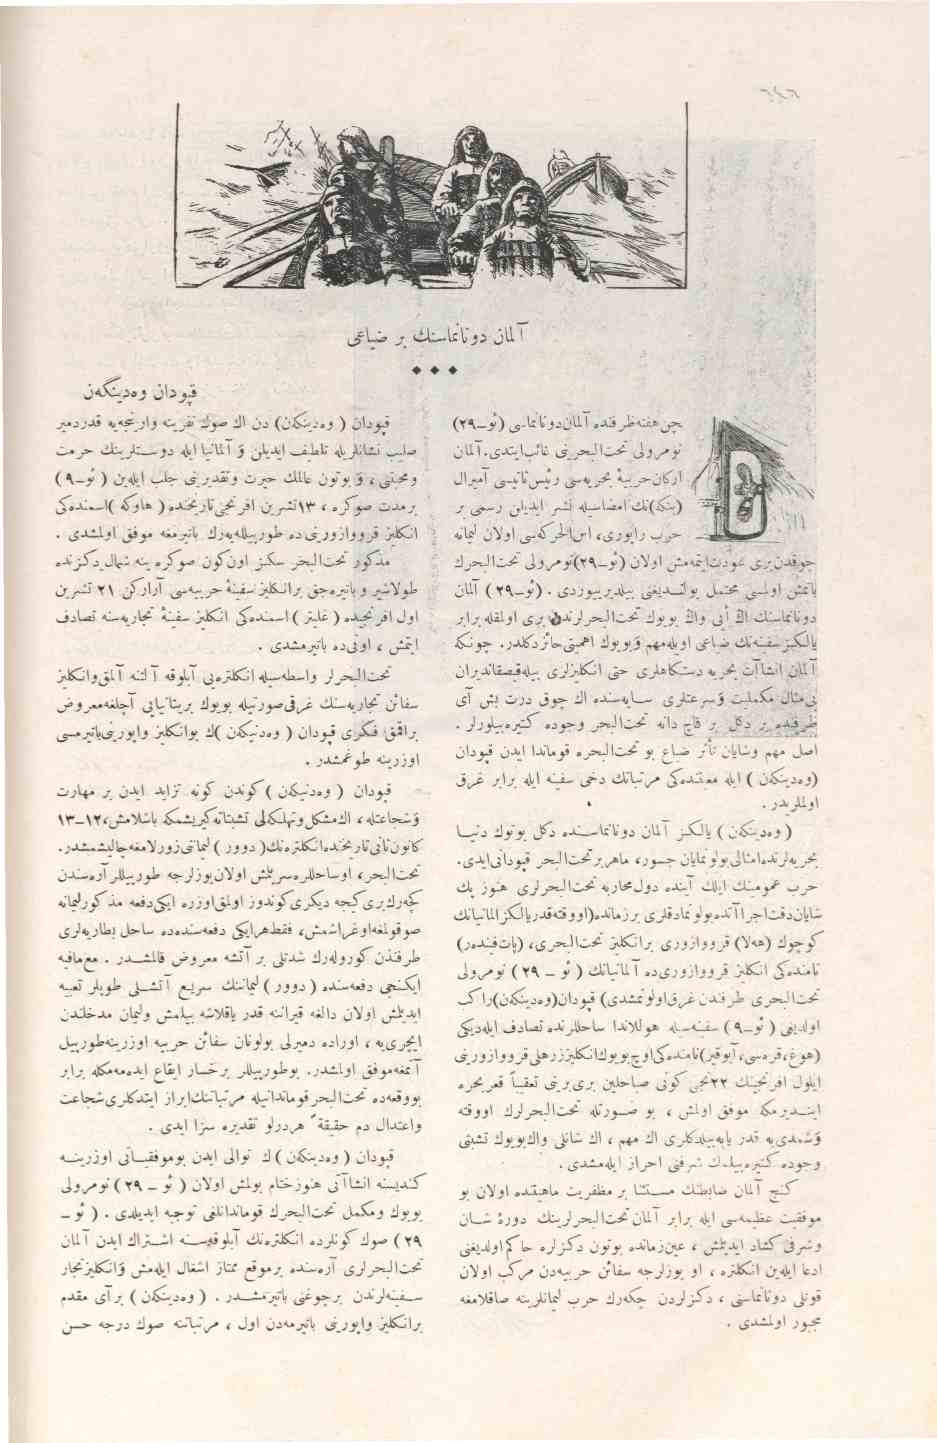 آلمان دونانماسنك بر ضیاعی
قپودان وه‌دینگه‌ن
چن هفته ظرفنده آلمان دونانماسی (ئو-٢٩)
نومرولی تحت‌البحرینی غائب ایتدی. آلمان
ارکان حربیهٔ بحریه‌سی رئیس ثانیسی آمیرال
(بنكه)نك امضاسیله نشر ایدیلن رسمی بر
حرب راپوری، اس الحرکه‌سی اولان لیمانه
چوقدن‌بری عودت ایتمه‌مش اولان (ئو-٢٩) نومرولی تحت‌البحرك
باتمش اولمسی محتمل بولندیغنی بیلدیرییوردی. (ئو-٢٩) آلمان
دونانماسنك اڭ ایی واڭ بویوك تحت‌البحرلرندن بری اولمقله برابر
یالکز سفینه‌نك ضیاعی اویله مهم و بویوك اهمیتی حائز دکلدر. چونکه
آلمان انشاآت بحریه دستکاهلری حتی انکلیزلری بیله قیصقاندیران
بی‌مثال مکملیت و سرعتلری سایه‌سنده اك چوق درت بش آی
ظرفنده بر دکل بر قاچ دانه تحت‌البحر وجوده کتیره‌بیلورلر.
اصل مهم وشایان تأثر ضیاع بو تحت‌البحره قوماندا ایدن قپودان
(وه‌دینکه‌ن) ایله معیتنده‌کی مرتباتك دخی سفینه ایله برابر غرق
اولملریدر.
(وه‌دینکه‌ن) یالکز آلمان دونانماسنده دکل بوتون دنیا
بحریه‌لرنده امثالی بولونمایان جسور، ماهر بر تحت‌البحر قپودانی ایدی.
حرب عمومینك ایلك آینده دول محاربه تحت‌البحرلری هنوز پك
شایان دقت اجراآتده بولونمادقلری بر زمانده (اووقته قدر یالکز آلمانیانك
کوچوك (هه‌لا) قرووازوری بر انکلیز تحت‌البحری، (پات‌فیندر)
نامنده‌کی انکلیز قرووازوری ده آلمانیانك (ئو - ٢٩) نومرولی
تحت‌البحری طرفندن غرق اولونمشدی) قپودان (وه‌دینکه‌ن) راکب
اولدیغی (ئو-٩) سفینه‌سیله هوللاندا ساحللرنده تصادف ایله‌دیکی
(هوغ، قره‌سی، آبوقیر) نامنده‌کی اوچ بویوك انکلیز زرهلی قرووازورینی
ایلول افرنجینك ٢٢نجی کونی صباحلین بربرینی تعقیباً قعر بحره
ایندیرمکه موفق اولمش، بو صورتله تحت‌البحرلرك اووقته
وشمدی‌یه قدر یاپه‌بیلدکلری اك مهم، اك شانلی واك بویوك تشبثی
وجوده کتیره‌بیلمك شرفنی احراز ایله‌مشدی.
کنج آلمان ضابطنك مستثنا بر مظفریت ماهیتنده اولان بو
موفقیت عظیمه‌سی ایله برابر آلمان تحت‌البحرلرینك دورهٔ شان
وشرفی کشاد ایدیلمش، عین زمانده بوتون دکزلره حاکم اولدیغنی
ادعا ایله‌ین انکلتره، او یوزلرجه سفائن حربیه‌دن مرکب اولان
قوتلی دونانماسنی، دکزلردن چکه‌رك حرب لیمانلرینه صاقلامغه
مجبور اولمشدی.
قپودان (وه‌دینکه‌ن) دن اك صوك نفرینه وارنجه‌یه قدر دمیر
صلیب نشانلریله تلطیف ایدیلن و آلمانیا ایله دوستلرینك حرمت
ومحبتنی، و بوتون عالمك حیرت وتقدیرینی جلب ایله‌ین (ئو-٩)
بر مدت صوکره، ١٣ تشرین افرنجی تاریخنده (هاوكه) اسمنده‌کی
انکلیز قرووازورینی ده طورپیلله‌یه‌رك باتیرمغه موفق اولمشدی.
مذکور تحت‌البحر سکز اون کون صوکره ینه شمال دکزنده
طولاشیر و باتیره‌جق بر انکلیز سفینهٔ حربیه‌سی آرارکن ٢١ تشرین
اول افرنجیده (غلیتر) اسمنده‌کی انکلیز سفینهٔ تجاریه‌سنه تصادف
ایتمش، اونی ده باتیرمشدی.
تحت‌البحرلر واسطه‌سیله انکلتره‌یی آبلوقه آلتنه آلمق وانکلیز
سفائن تجاریه‌سنك غرقی صورتیله بویوك بریتانیایی آچلغه معروض
براقمق فکری قپودان (وه‌دینکه‌ن)ك بو انکلیز واپورینی باتیرمسی
اوزرینه طوغمشدر.
قپودان (وه‌دینکه‌ن) کوندن کونه تزاید ایدن بر مهارت
وشجاعتله، اك مشکل وتهلکه‌لی تشبثاته کیریشمکه باشلامش، ١٢-١٣
کانون ثانی تاریخنده انکلتره‌نك (دوور) لیماننی زورلامغه چالیشمشدر.
تحت‌البحر، او ساحللره سرپیلمش اولان یوزلرجه طورپیللر آره‌سندن
کچه‌رك بری کیجه دیکری کوندوز اولمق اوزره ایکی دفعه مذکور لیمانه
صوقولمغه اوغراشمش، فقط هر ایکی دفعه‌سنده ده ساحل بطاریه‌لری
طرفندن کوروله‌رك شدتلی بر آتشه معروض قالمشدر. مع‌مافیه
ایکنجی دفعه‌سنده (دوور) لیماننك سریع آتشلی طوپلر تعبیه
ایدیلمش اولان دالغه قیراننه قدر یاقلاشه بیلمش ولیمان مدخلندن
ایچری‌یه، اوراده دمیرلی بولونان سفائن حربیه اوزرینه طورپیل
آتمغه موفق اولمشدر. بو طورپیللر بر خسار ایقاع ایده‌مه‌مکله برابر
بو وقعه‌ده تحت‌البحر قوماندانیله مرتباتنك ابراز ایتدکلری شجاعت
واعتدال دم حقیقةً هر درلو تقدیره سزا ایدی.
قپودان (وه‌دینکه‌ن)ك توالی ایدن بو موفقیاتی اوزرینه
کندیسنه انشاآتی هنوز ختام بولمش اولان (ئو - ٢٩) نومرولی
بویوك ومکمل تحت‌البحرك قوماندانلغی توجیه ایدیلدی. (ئو -
٢٩) صوك کونلرده انکلتره‌نك آبلوقه‌سنه اشتراك ایدن آلمان
تحت‌البحرلری آره‌سنده بر موقع ممتاز اشغال ایله‌مش وانکلیز تجار
سفینه‌لرندن برچوغنی باتیرمشدر. (وه‌دینکه‌ن) بر آی مقدم
بر انکلیز واپورینی باتیرمه‌دن اول، مرتباتنه صوك درجه حسن